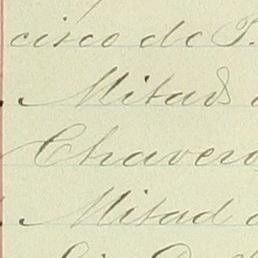 cisco de P.
Mitad
Chavero
Mitad d